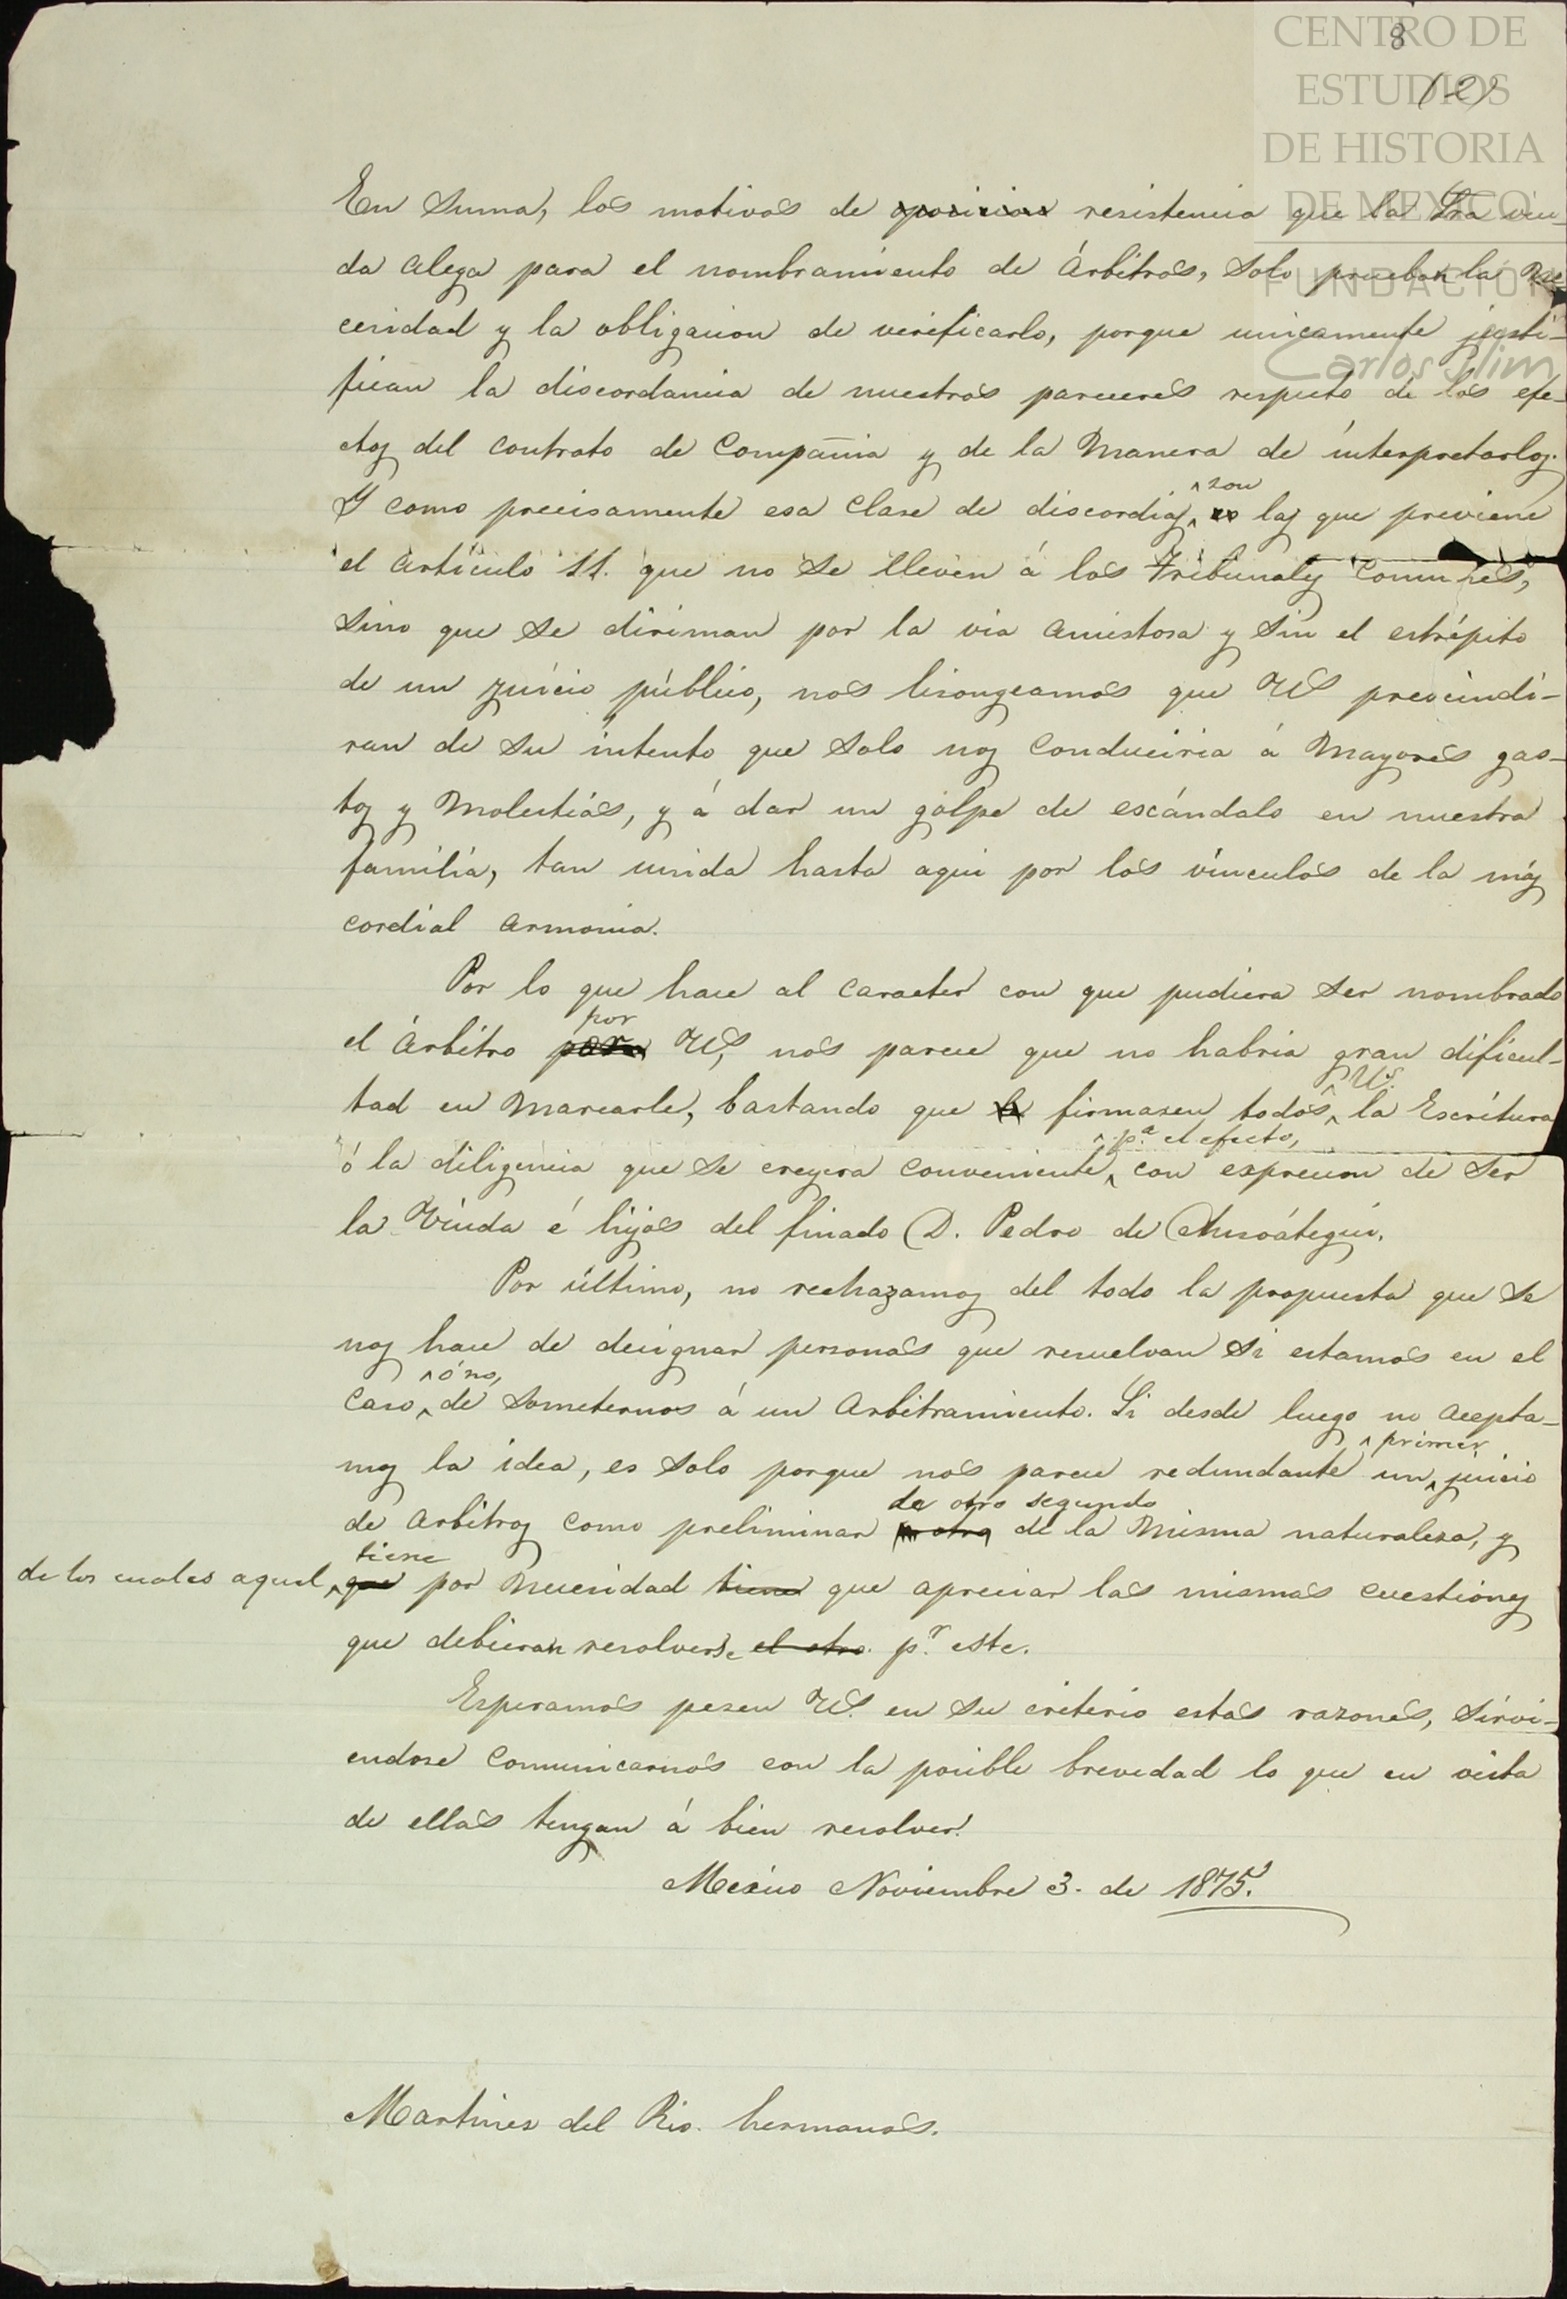 CENTRO DE
ESTUDIOS
DE HISTORIA
DE MEXICO
FUNDACIÓN
Carlos Slim
8
En suma, los motivos de oposicion resistencia que la Sra viu-
da alega para el nombramiento de Árbitros, solo prueban la ne
cesidad y la obligacion de verificarlo, porque unicamente justi-
fican la discordancia de nuestros pareceres respecto de los efe-
ctos del contrato de Compañia y de la manera de interpretarlos.
Y como precisamente esa clase de discordias ^son es las que previene
el artículo 11. que no se lleven á los Tribunales comunes,
sino que se diriman por la via amistosa y sin el estrépito
de un juício público, nos lisongeamos que US prescindi-
ran de su intento que solo nos conduciria á mayores gas-
tos y molestias, y á dar un golpe de escándalo en nuestra
familia, tan unida hasta aqui por los vínculos de la más
cordial armonia.
Por lo que hace al caracter con que pudiera ser nombrado
el Árbitro para por US, nos parece que no habria gran dificul-
tad en marcarle, bastando que la firmasen todos ^US. la Escritura
ó la diligencia que se creyera conveniente ^pª. el efecto, con expresion de ser
la Viuda é hijos del finado D. Pedro de Ansoátegui.
Por último, no rechazamos del todo la propuesta que se
nos hace de designar personas que resuelvan si estamos en el
caso ^ó no, de someternos á un arbitramiento. Si desde luego no acepta-
mos la idea, es solo porque nos parece redundante un ^primer juicio
de arbitros como preliminar de otro segundo otro de la misma naturaleza, y
de los cuales aquel ^que tiene por necesidad tiene que apreciar las mismas cuestiones
que debieran resolverse el otro. pr. este.
Esperamos pesen US. en su criterio estas razones, sirvi-
endose comunicarnos con la posible brevedad lo que en vista
de ellas tengan á bien resolver.
Mexico Noviembre 3. de 1875.
Martinez del Rio. hermanos.